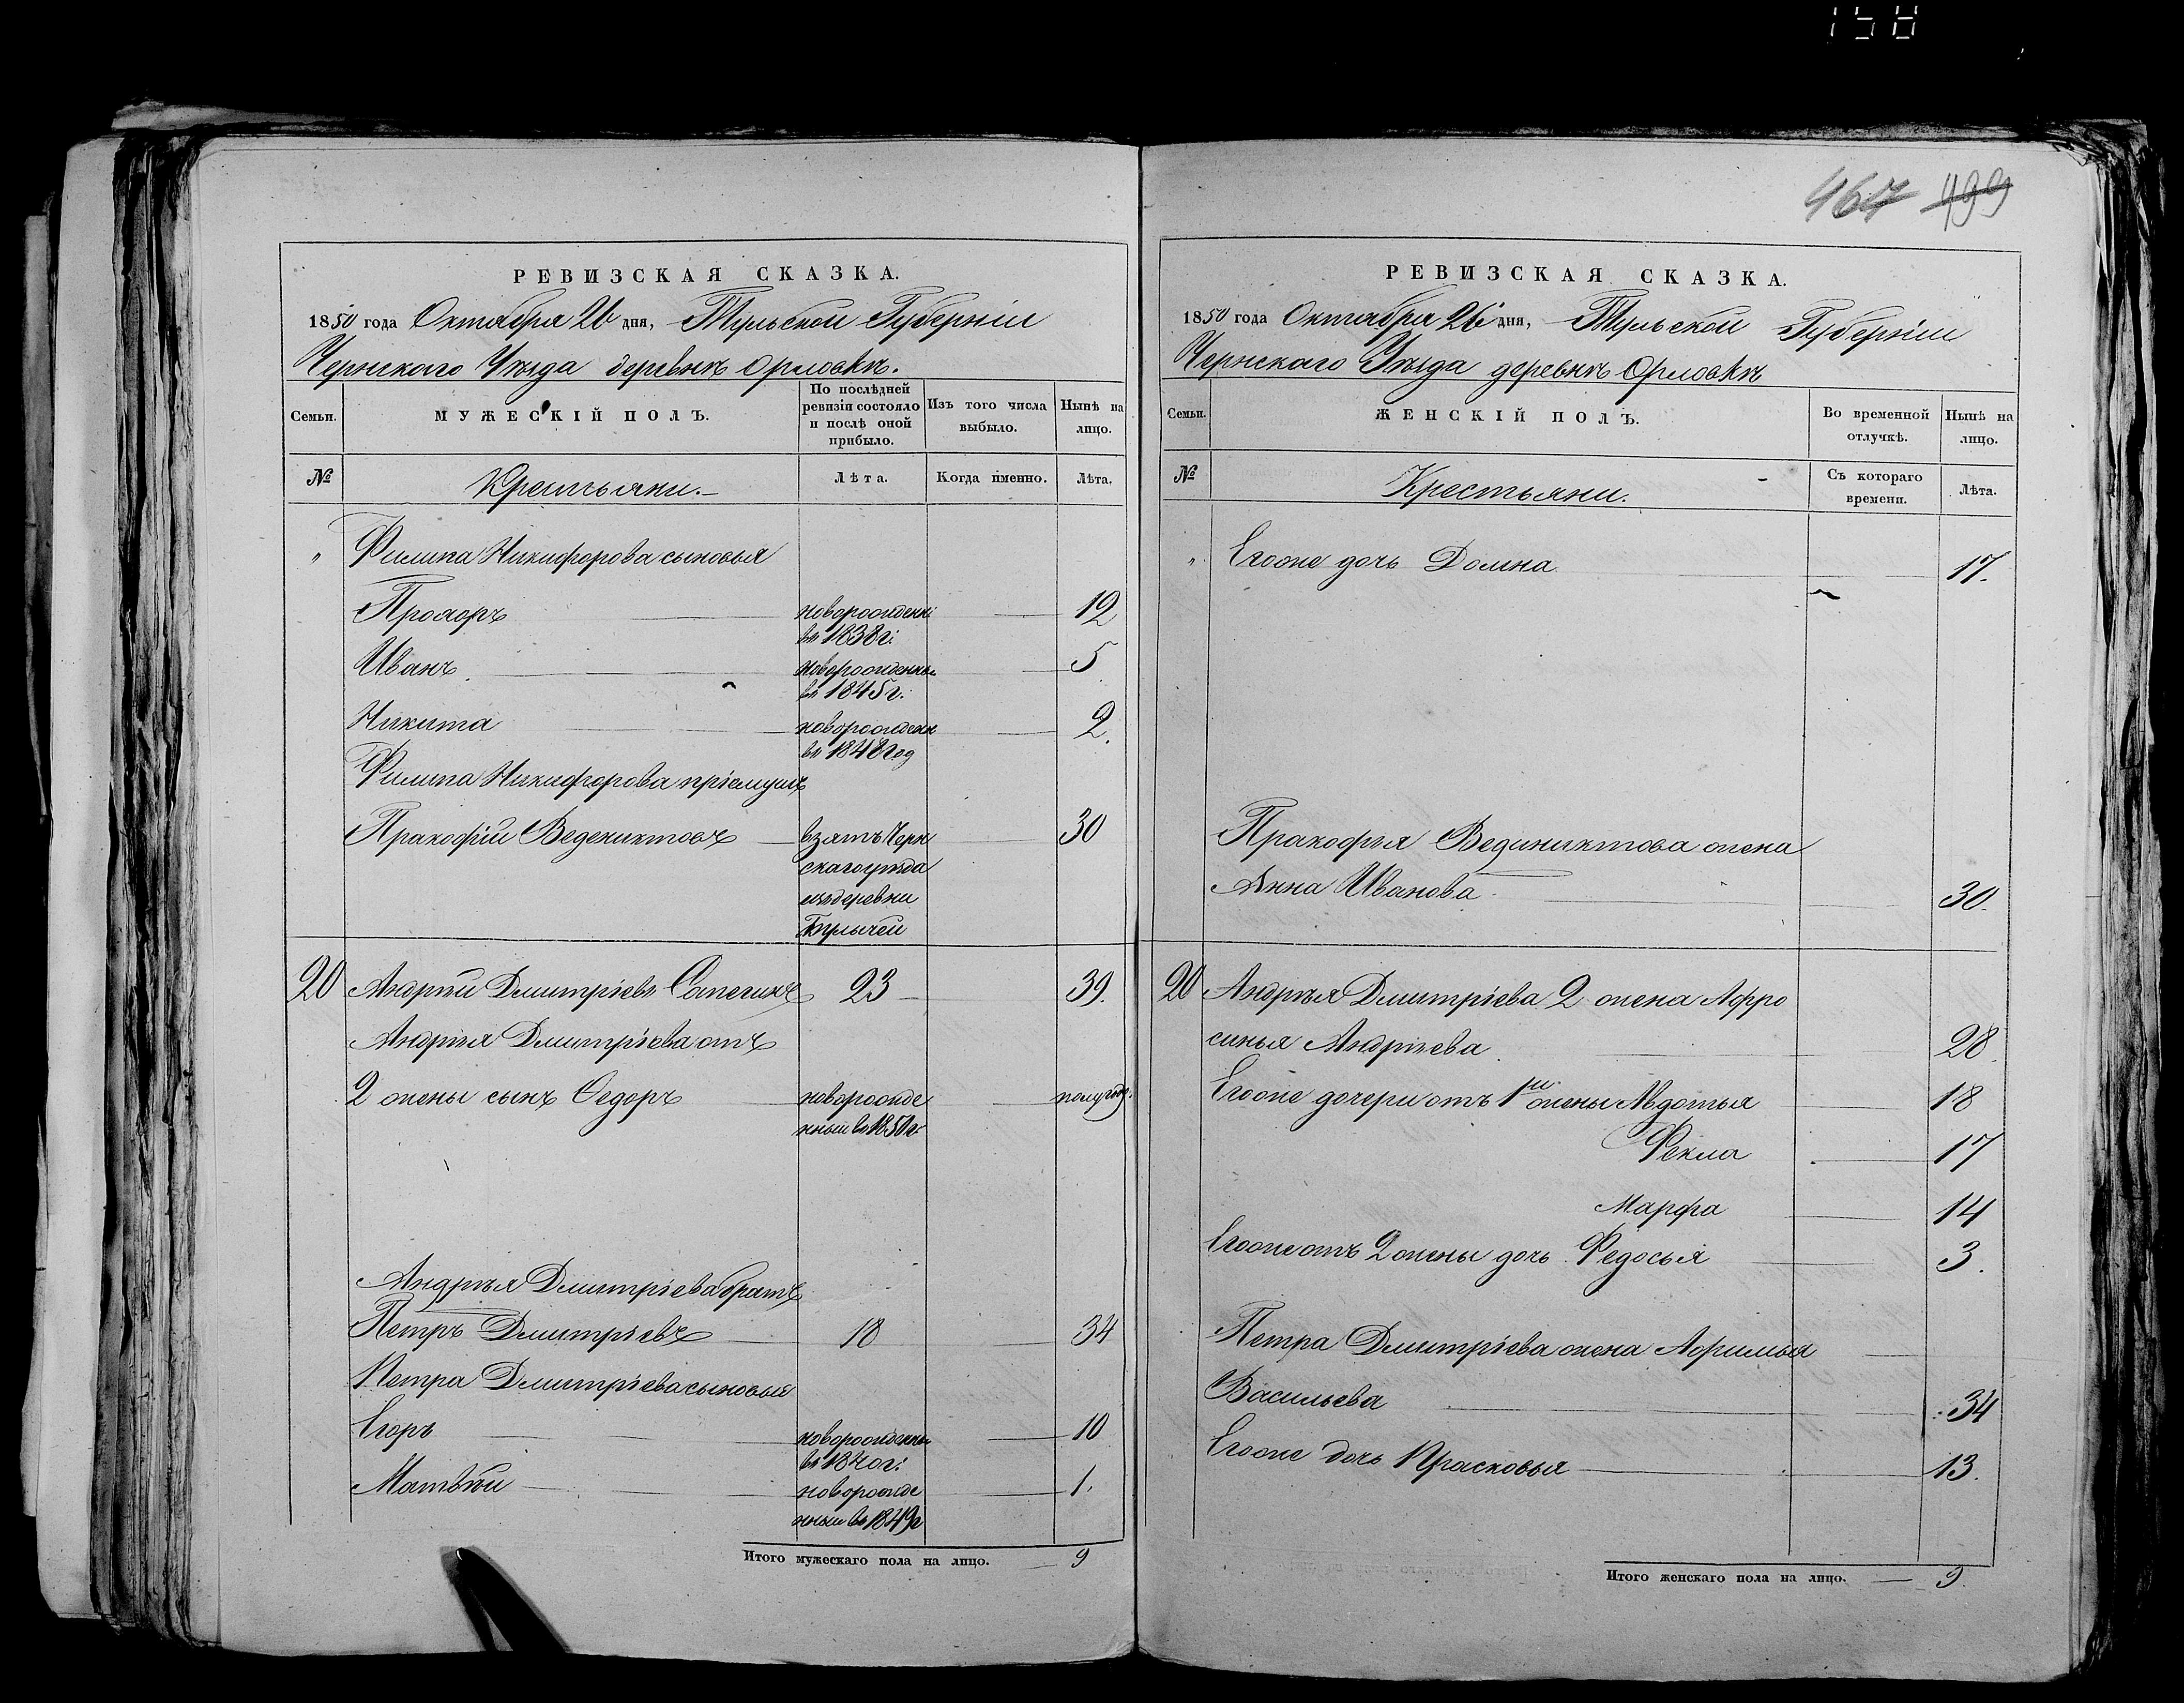 158
467 499
РЕВИЗСКАЯ СКАЗКА.
1850 года Октября 26 дня, Тульской Губерніи
Чернскаго Уѣзда деревнѣ Орловкѣ.
Семьи.
МУЖЕСКІЙ ПОЛЪ.
По послѣдней ревизіи состояло и послѣ оной прибыло.
Изъ того числа выбыло.
Нынѣ на лицо.
№
Крестьяни.
Лѣта.
Когда именно.
Лѣта.
" Филипа Никифорова сыновья
Прохоръ новорожденні 12
въ 1838 г:
Иванъ новорожденны 5
въ 1845 г.
Никита новорожденн 2.
въ 1848 год
Филипа Никифорова пріемушъ
Пракофій Веденихтовъ взятъ Черн 30
скаго уѣзда
изъ деревни
20 Андрѣй Дмитріевъ Сапегинъ 23 39.
Андрѣя Дмитріева отъ
2 жены сынъ Ѳедоръ новорожде полугода.
нный въ 1850 г.
Андрѣя Дмитріева братъ
Петръ Дмитріевъ 18 34
Петра Дмитріева сыновья
Егоръ новорожденны 10
въ 1840 г:
Матвѣй новорожде 1.
нный въ 1849 г
Итого мужескаго пола на лицо. 9
РЕВИЗСКАЯ СКАЗКА.
1850 года Октября 26 дня, Тульской Губерніи
Чернскаго Уѣзда деревнѣ Орловкѣ
Семьи.
ЖЕНСКІЙ ПОЛЪ.
Во временной отлучкѣ.
Нынѣ на лицо.
№
Крестьяни.
Съ котораго времени.
Лѣта.
" Егоже дочь Домна 17.
Пракофья Ведиnихтова жена
Анна Иванова 30.
20 Андрѣя Дмитріева 2 жена Афро
синья Андрѣева 28.
Егоже дочери отъ 1й жены Авдотья 18
Фекла 17
Марфа 14
Егоже отъ 2 жены дочь Федосья 3.
Петра Дмитріева жена Афимья
Васильева 34
Егоже дочь Прасковья 13.
Итого женскаго пола на лицо. 9.